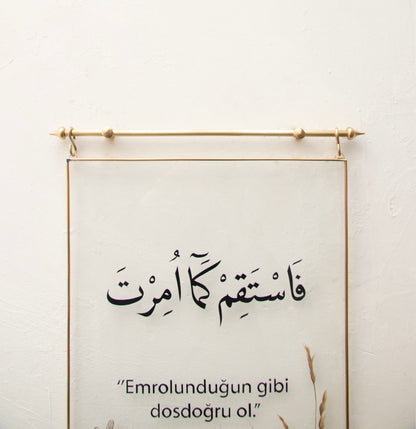 فَاسْتَقِمْ كَمَٓا اُمِرْتَ
“Emrolunduğun gibi
dosdoğru ol.”